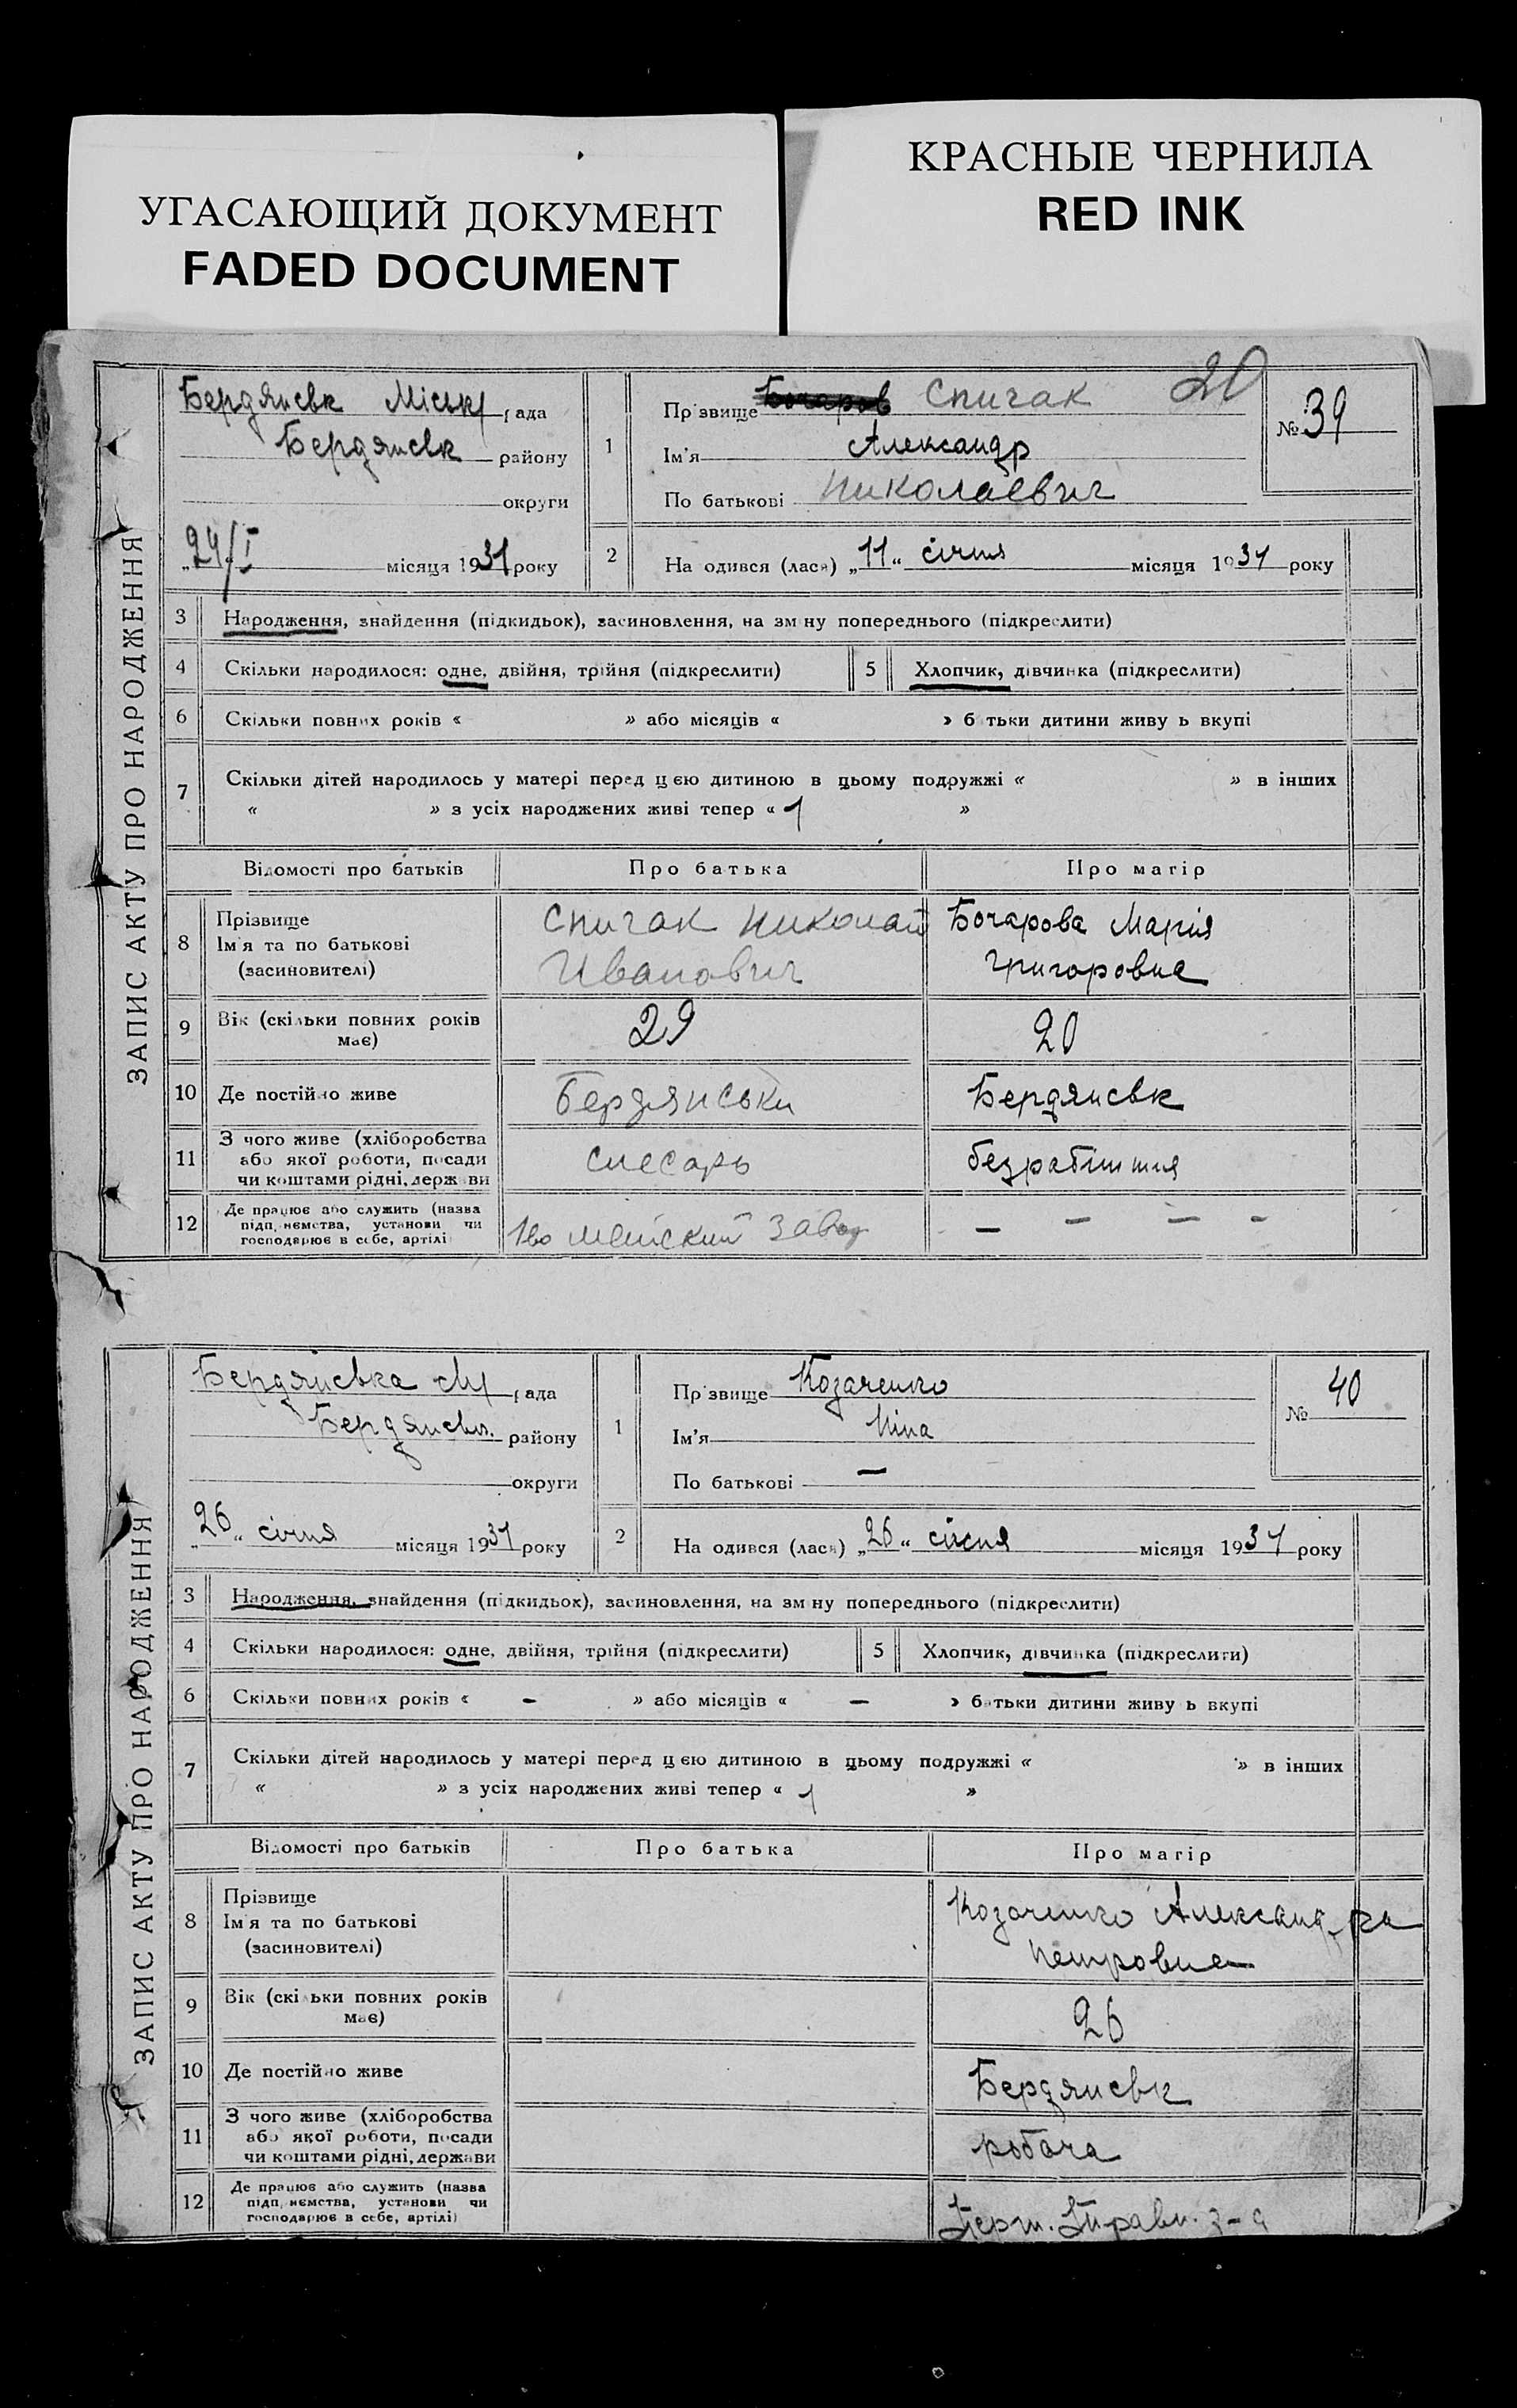 УГАСАЮЩИЙ ДОКУМЕНТ
FADED DOCUMENT
КРАСНЫЕ ЧЕРНИЛА
RED INK
20
ЗАПИС АКТУ ПРО НАРОДЖЕННЯ
Бердянськ Міськ рада
Бердянськ району
округи
„24/I місяця 1931 року
1
Прізвище Бочаров Спичак
Ім'я Александр
По батькові Николаевич
№ 39
2
На одився (лася) „11“ січня місяця 1931 року
3 Народження, знайдення (підкидьок), засиновлення, на зм ну попереднього (підкреслити)
4 Скільки народилося: одне, двійня, трійня (підкреслити)
5 Хлопчик, дівчинка (підкреслити)
6 Скільки повних років « » або місяців « » б тьки дитини живу ь вкупі
7 Скільки дітей народилось у матері перед ц єю дитиною в цьому подружжі « » в інших
« » з усіх народжених живі тепер « 1 »
Відомості про батьків Про батька Про матір
8 Прізвище
Ім'я та по батькові
(засиновителі)
Спичак Николай
Иванович
Бочарова Марія
Григоровна
9 Вік (скільки повних років
має)
29
20
10 Де постійно живе
Бердянськи
Бердянськ
11 З чого живе (хліборобства
або якої роботи, посади
чи коштами рідні, держави
слесарь
безработня
12 Де працює або служить (назва
підп, нємства, установи чи
господарює в себе, артілі
1во Майский завод
— — — —
ЗАПИС АКТУ ПРО НАРОДЖЕННЯ
Бердянська М рада
Бердянськ. району
округи
„26“ січня місяця 1931 року
1
Прізвище Козаченко
Ім'я Ніна
По батькові —
№ 40
2
На одився (лася) „26“ січня місяця 1931 року
3 Народження, знайдення (підкидьок), засиновлення, на зм ну попереднього (підкреслити)
4 Скільки народилося: одне, двійня, трійня (підкреслити)
5 Хлопчик, дівчинка (підкреслити)
6 Скільки повних років « — » або місяців « — » батьки дитини живу ь вкупі
7 Скільки дітей народилось у матері перед ц єю дитиною в цьому подружжі « » в інших
« » з усіх народжених живі тепер « 1 »
Відомості про батьків Про батька Про матір
8 Прізвище
Ім'я та по батькові
(засиновителі)
Козаченко Александра
Петровна
9 Вік (скі ьки повних років
має)
26
10 Де постійно живе
Бердянськ
11 З чого живе (хліборобства
або якої роботи, посади
чи коштами рідні, держави
робоча
12 Де працює або служить (назва
підп, нємства, установи чи
господарює в себе, артілі)
Перш. Травн. з-д